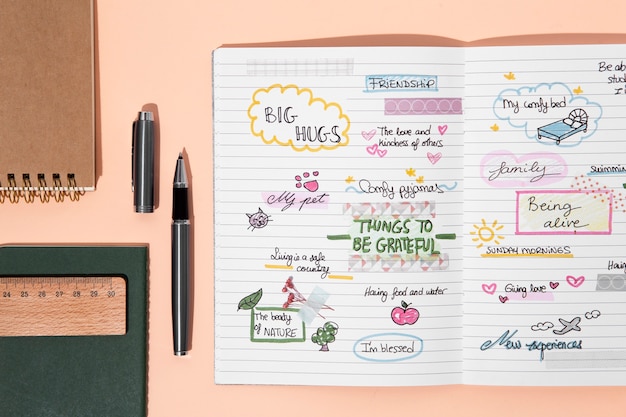 FRIENDSHIP
BIG
HUGS
The love and
kindness of others
My pet
Comfy pyjamas
THINGS TO
BE GRATEFUL
Living in a safe
country
Having food and water
The beauty
of NATURE
I'm blessed
Be ab
stud
I i
My comfy bed
family
Swimmin
Being
alive
SUNDAY MORNINGS
Giving love
New experiences
24 25 26 27 28 29 30